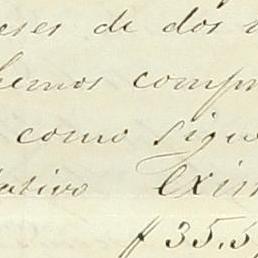 eses de dos
hemos compr
como sigue
tativo Exis
$ 35.5